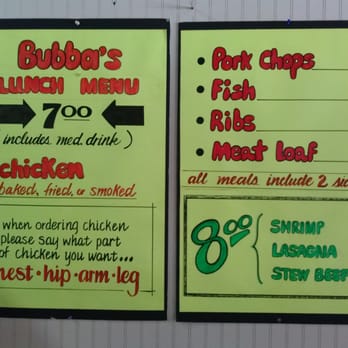 Bubba's
LUNCH MENU
7.00
(includes med. drink)
chicken
baked, fried, or smoked
when ordering chicken
please say what part
of chicken you want...
hip • arm • leg
• Pork Chops
• Fish
• Ribs
• Meat Loaf
all meals include 2
8.00
SHRIMP
LASAGNA
STEW BEEF